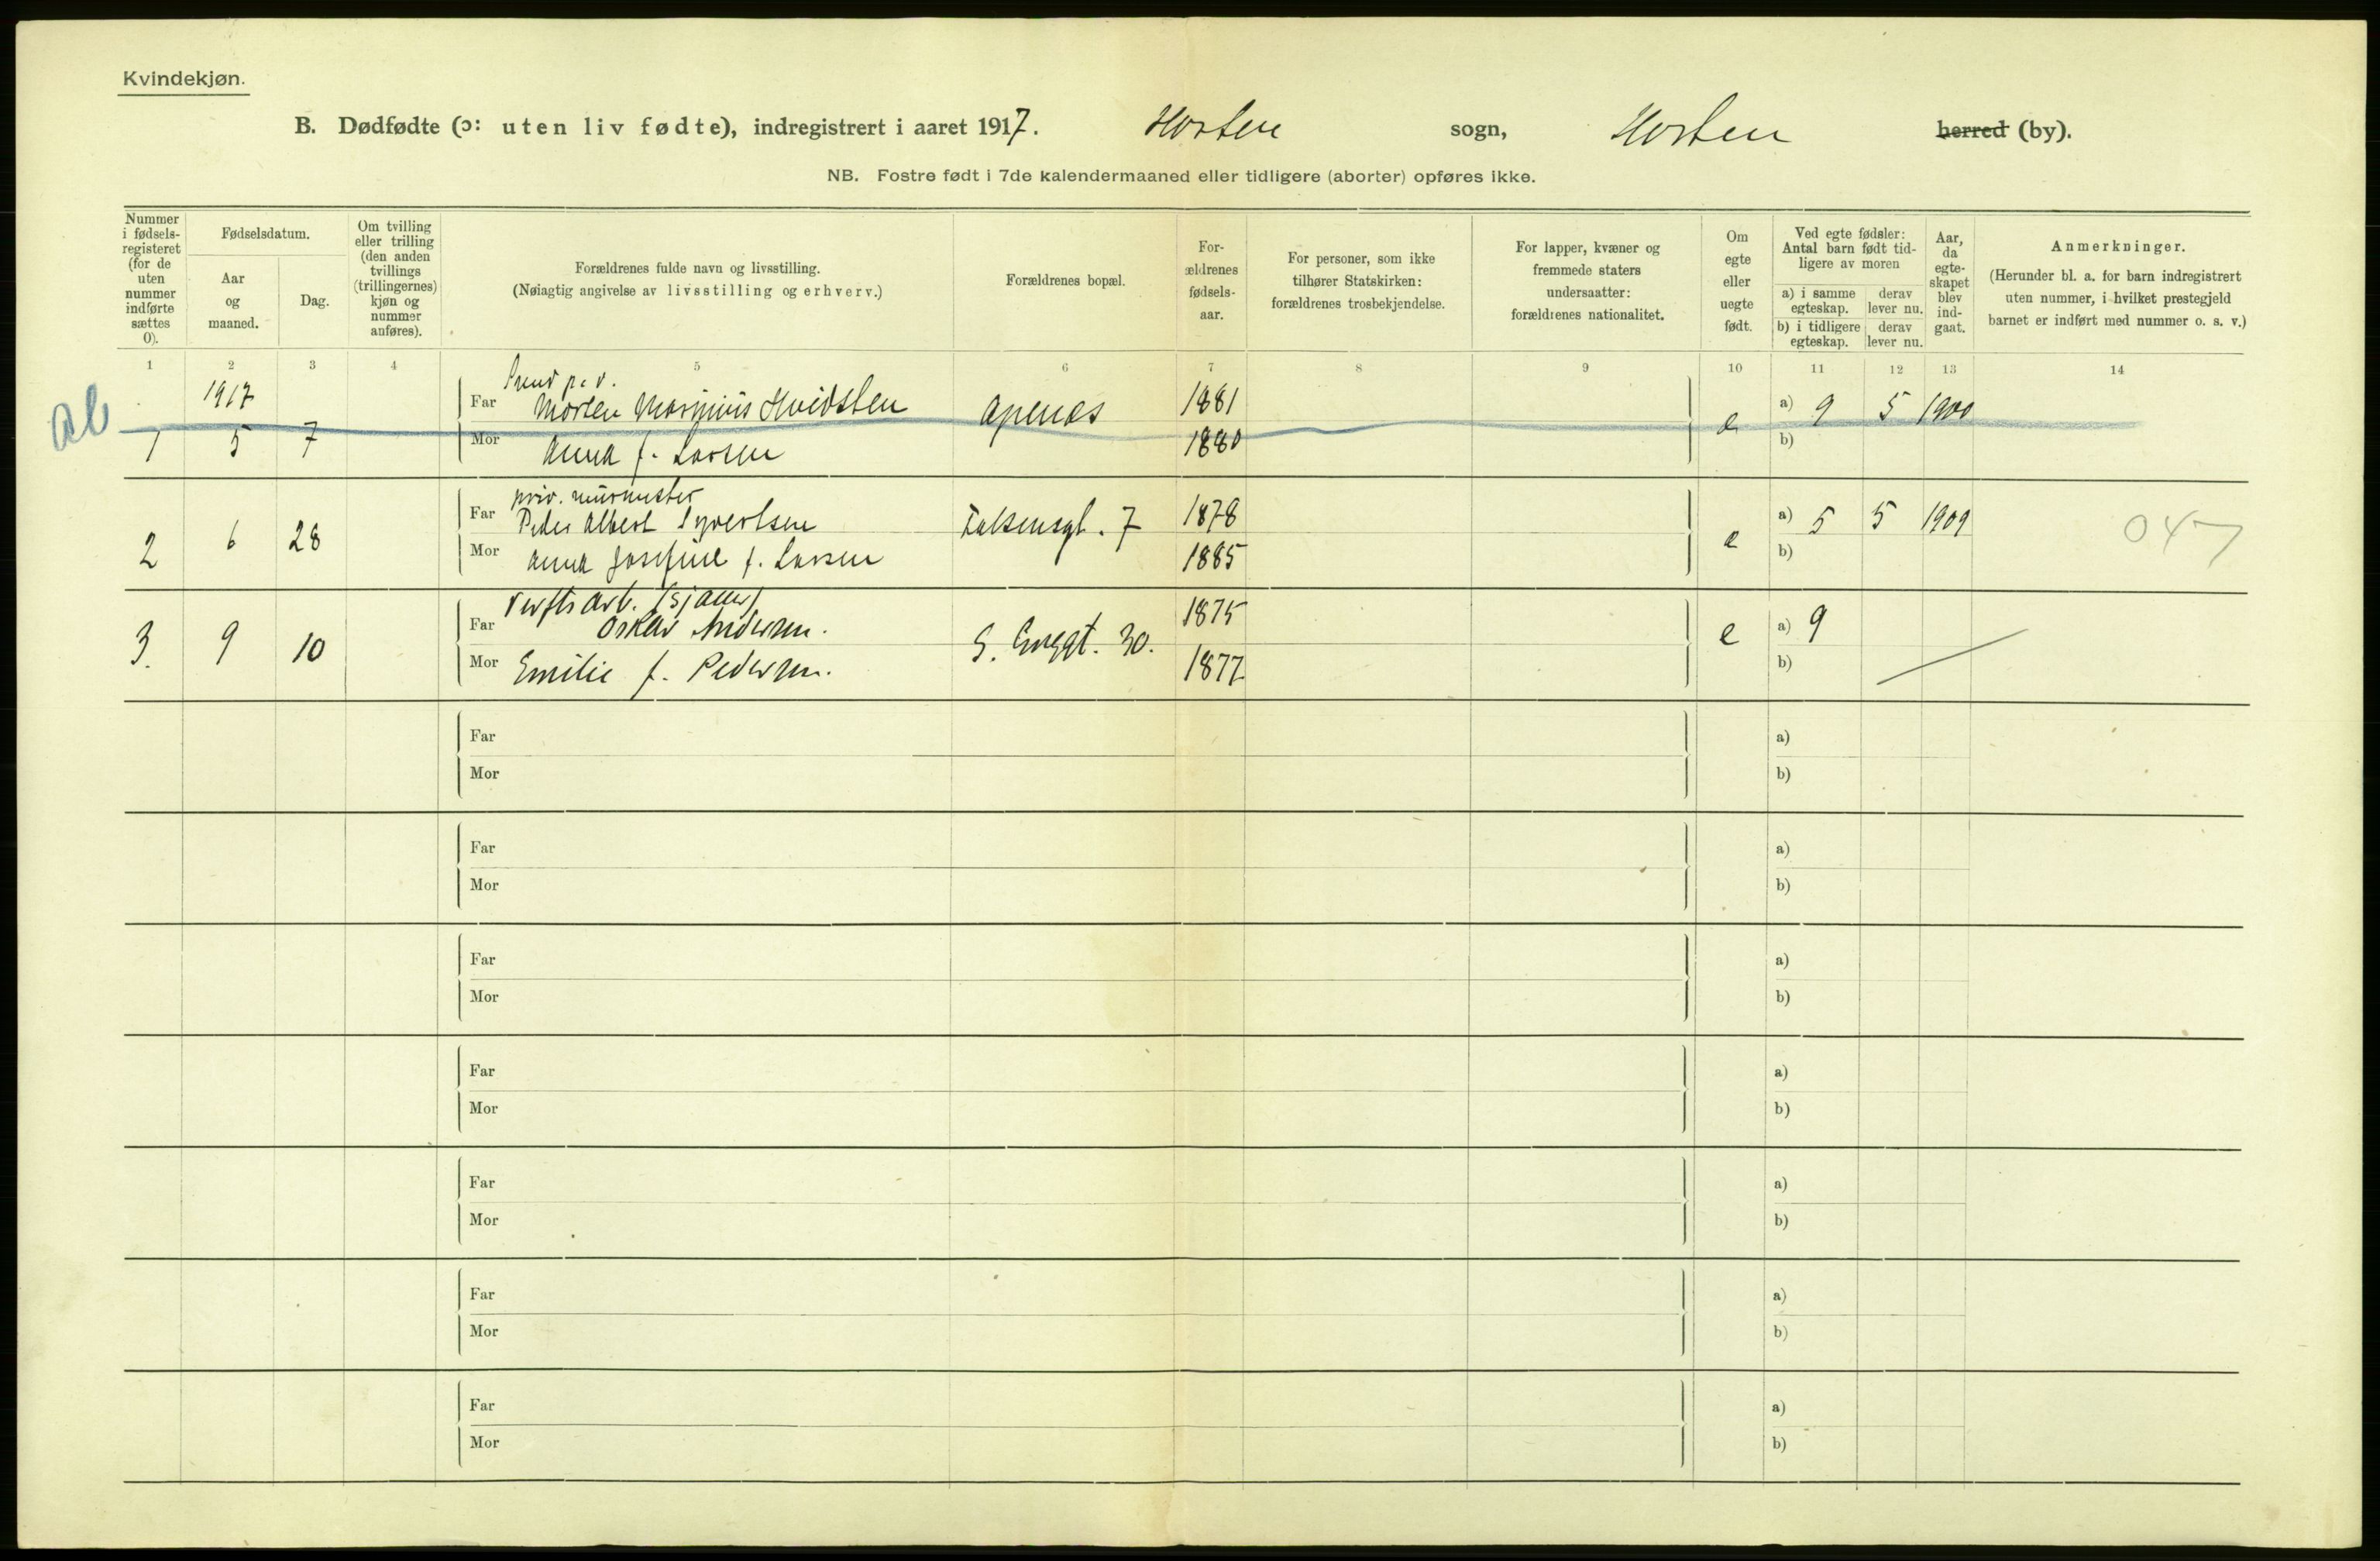 Kvindekjøn.
B. Dødfødte (ɔ: uten liv fødte), indregistrert i aaret 1917. Horten sogn, Horten herred (by).
NB. Fostre født i 7de kalendermaaned eller tidligere (aborter) opføres ikke.
Nummer i fødsels-registeret (for de uten nummer indførte sættes 0).
Fødselsdatum.
Aar og maaned.
Dag.
Om tvilling eller trilling (den anden tvillings (trillingernes) kjøn og nummer anføres).
Forældrenes fulde navn og livsstilling.
(Nøiagtig angivelse av livsstilling og erhverv.)
Forældrenes bopæl.
For-ældrenes fødsels-aar.
For personer, som ikke tilhører Statskirken: forældrenes trosbekjendelse.
For lapper, kvæner og fremmede staters undersaatter: forældrenes nationalitet.
Om egte eller uegte født.
Ved egte fødsler: Antal barn født tid-ligere av moren
a) i samme egteskap. derav lever nu.
b) i tidligere egteskap. derav lever nu.
Aar, da egte-skapet blev ind-gaat.
Anmerkninger.
(Herunder bl. a. for barn indregistrert uten nummer, i hvilket prestegjeld barnet er indført med nummer o. s. v.)
1 2 3 4 5 6 7 8 9 10 11 12 13 14
1917
Far Morten Marinius Hvidsten Apenes 1881 a) 9 5 1900
1 5 7 Mor Anna f. Larsen 1880 e b)
priv. murmester
Far Peder Albert Syvertsen Falsensgt. 7 1878 a) 5 5 1909
2 6 28 Mor Anna Josefine f. Larsen 1885 e b)
047
Verftsarb. (sjauer)
Far Oskar Andersen. 1875 a) 9
3. 9 10 Mor Emilie f. Pedersen. 30. 1877 e b)
Far a)
Mor b)
Far a)
Mor b)
Far a)
Mor b)
Far a)
Mor b)
Far a)
Mor b)
Far a)
Mor b)
Far a)
Mor b)